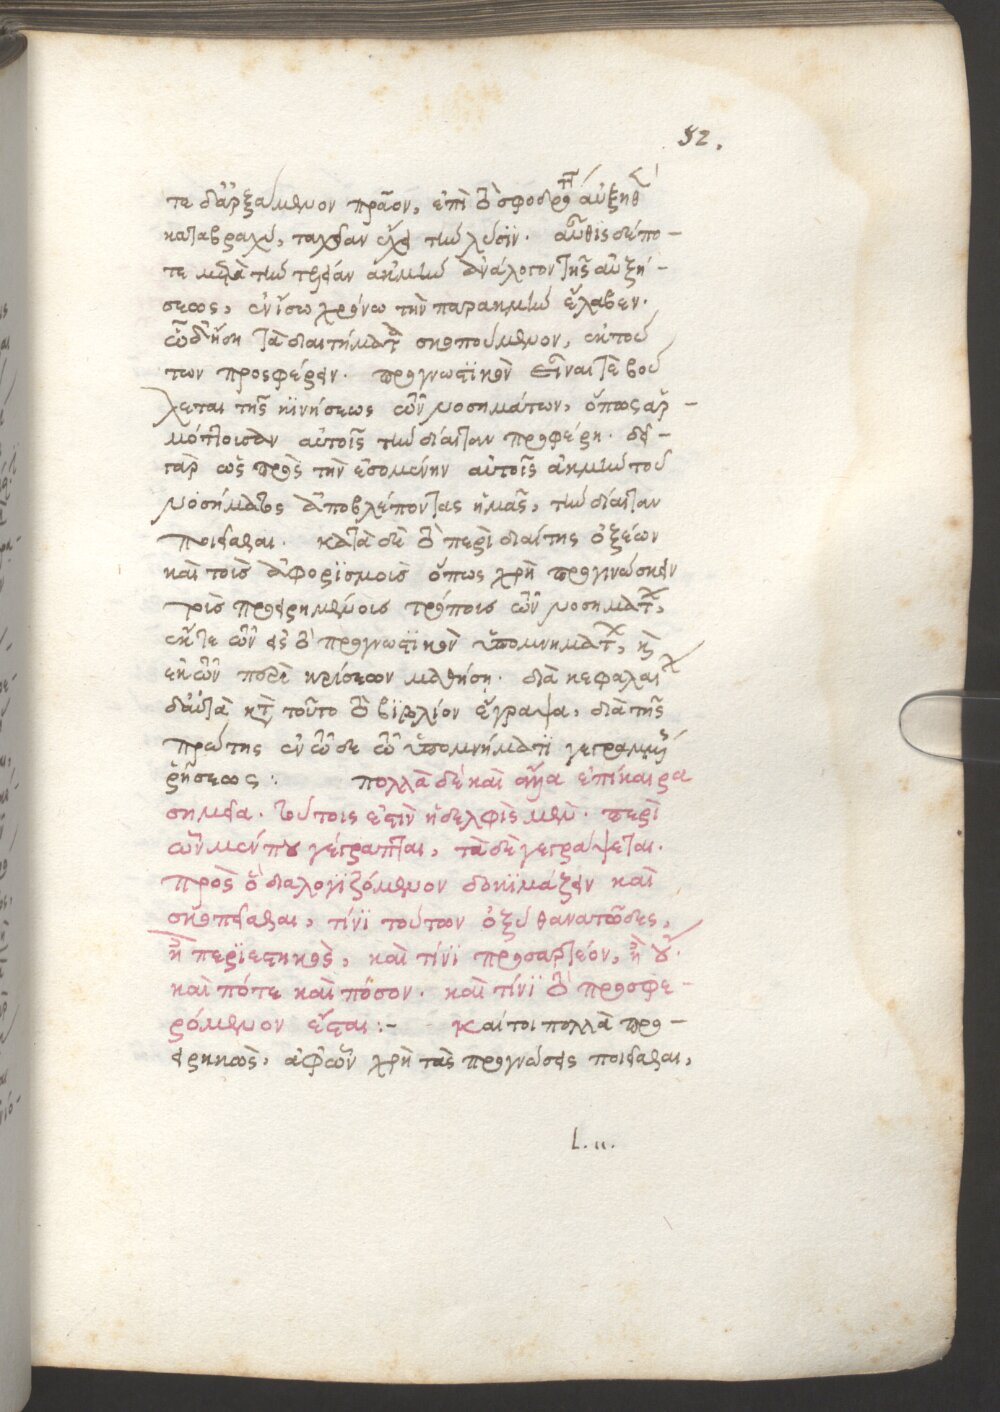 52.
τε δ' ἀρξάμενον πρᾶον, ἐπὶ τὸ σφοδρὸν αὐξηθὲν
καταβραχὺ, ταχεῖαν ἔχει τὴν λύσϊν. αὖθις δέ πο-
τε μετὰ τὴν ταχεῖαν ἀκμὴν ἀνάλογον τῆς αὐξή-
σεως, ἐν ἴσω χρόνω τὴν παρακμὴν ἔλαβεν.
ὧδ' ἤδη τὰ διαιτήματα σκοπούμενον, ἐκ τού
των προσφέρειν. προγνωστϊκὸν εἶναί τε βού
λεται τῆς κϊνήσεως τῶν νοσημάτων, ὅπως ἁρ-
μόττουσαν αὐτοῖς τὴν δίαιταν προφέρη. δεῖ-
γὰρ ὡς πρὸς τὴν ἐσομένην αὐτοῖς ἀκμὴν τοῦ
νοσήματος ἀποβλέποντας ἡμᾶς, τὴν δίαιταν
ποιεῖσθαι. κατὰ δὲ τὸ περὶ διαίτης ὀξέων
καὶ τοῖς ἀφορϊσμοῖς ὅπως χρὴ προγινώσκειν
τοῖς προειρημένοις τρόποις τῶν νοσημάτων,
ἔκ τε τῶν εἰς τὸ προγνωστϊκὸν ὑπομνημάτων, καὶ
ἐκ τῶν περὶ κρίσεων μαθήση. διὰ κεφαλαίων
δ' αὐτὰ κατὰ τοῦτο τὸ βϊβλίον ἔγραψα, διὰ τῆς
πρώτης ἐν τῶδε τῶ ὑπομνήματϊ γεγραμμένης
ῥήσεως: πολλὰ δὲ καὶ ἄλλα ἐπίκαιρα
σημεῖα. τούτοις ἐστὶν ἠδελφισμένα. περὶ
ὧν μέν που γέγραπται, τὰ δὲ γεγράψεται.
πρὸς ὃ διαλογϊζόμενον δοκϊμάζειν καὶ
σκοπεῖσθαι, τίνϊ τούτων ὀξὺ θανατῶδες,
ἢ περϊεστηκὸς, καὶ τίνϊ προσαρτέον, ἢ οὔ.
καὶ πότε καὶ πόσον. καὶ τίνϊ τὸ προσφε-
ρόμενον ἔσται:- Καίτοι πολλὰ προ-
ειρηκὼς, ἀφ' ὧν χρὴ τὰς προγνώσεις ποιεῖσθαι,